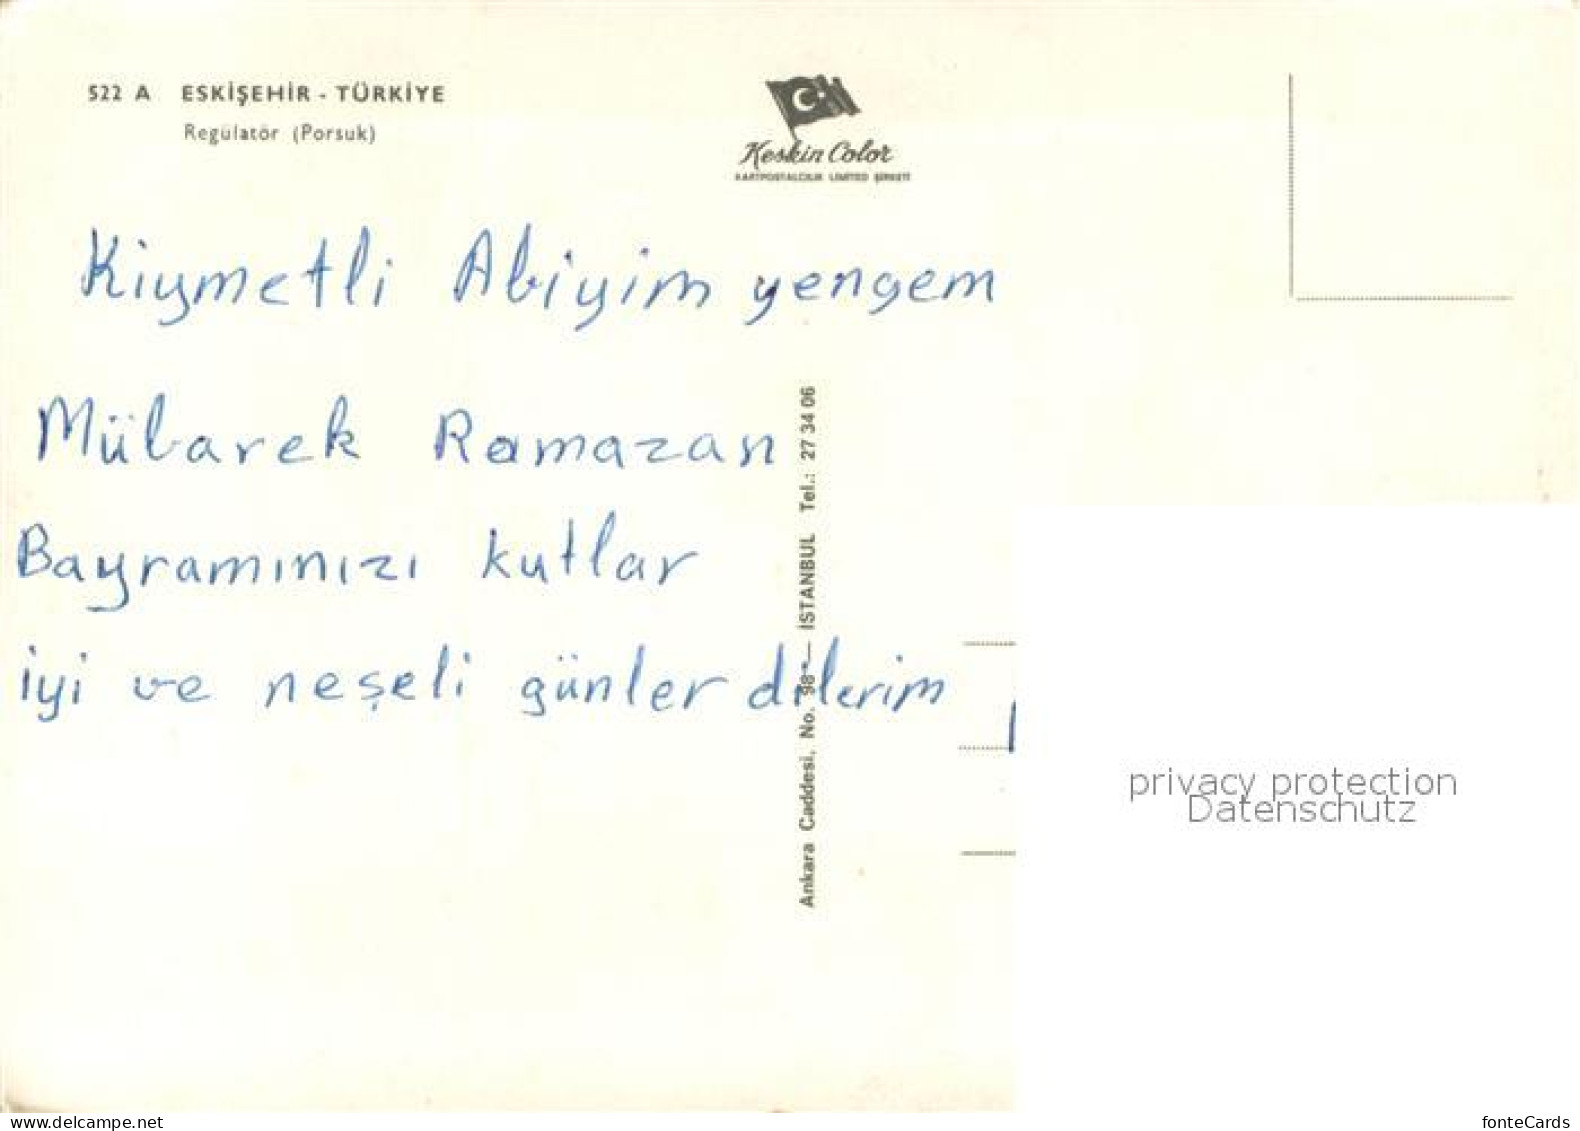 522 A ESKİŞEHİR - TÜRKİYE
Regülatör (Porsuk)
Keskin Color
KARTPOSTALCILIK LIMITED ŞİRKETİ
Kiymetli Abiyim yengem
Mübarek Ramazan
Bayramınızı kutlar
iyi ve neşeli günler dilerim
Ankara Caddesi, No. 98 — İSTANBUL Tel.: 27 34 06
privacy protection
Datenschutz
www.delcampe.net
fonteCards